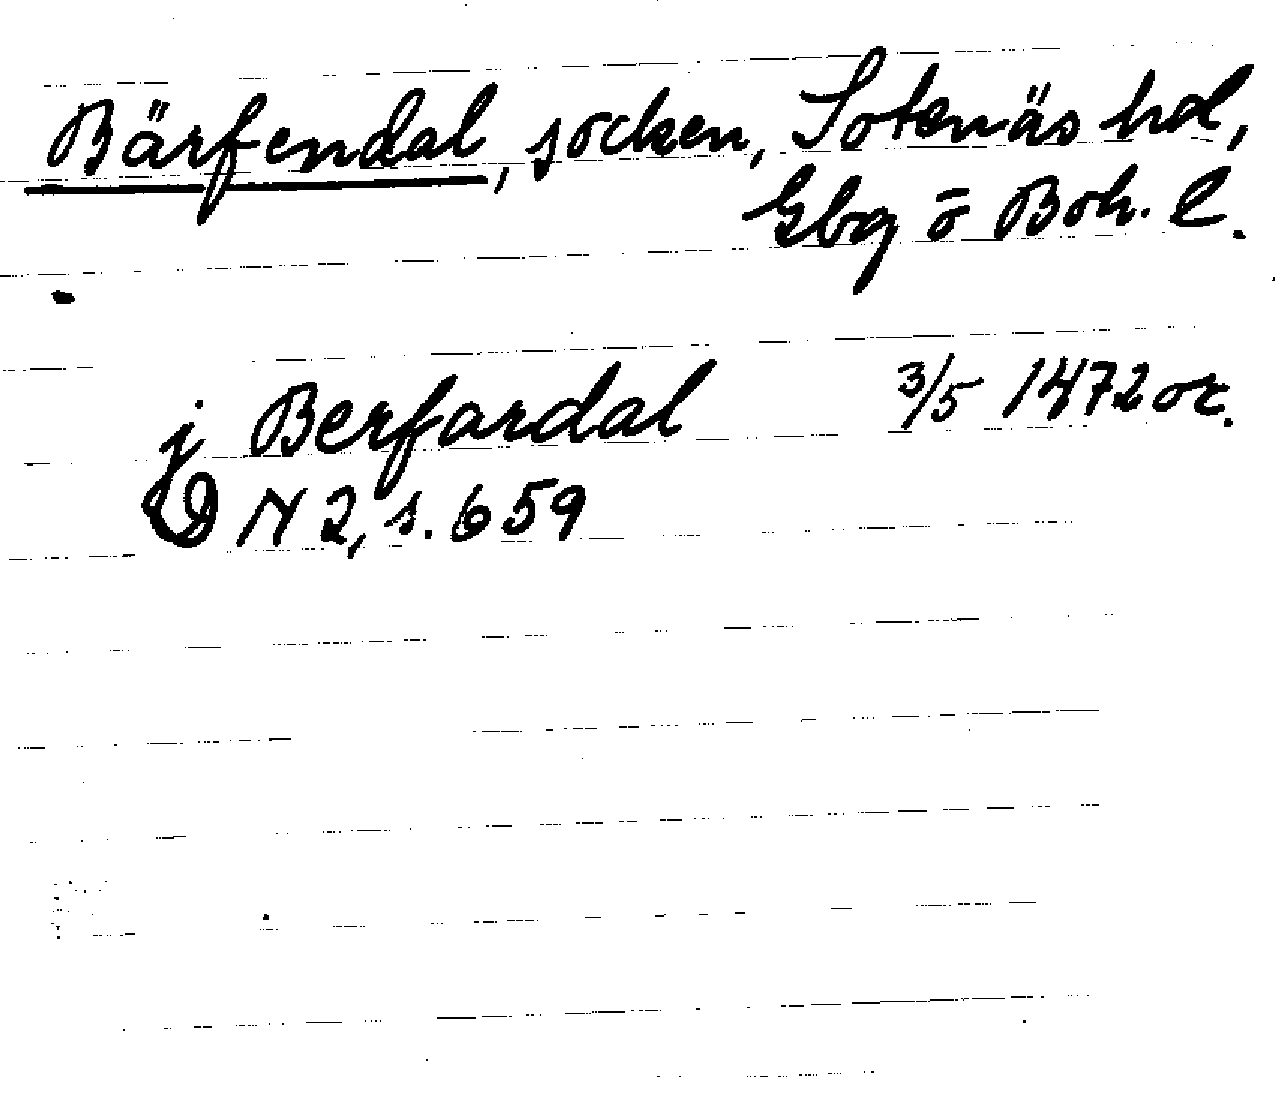 Bärfendal, socken, Sotenäs hd,
Gbg o Boh. l.
j Berfardal 3/5 1472 or.
DN 2, s. 659